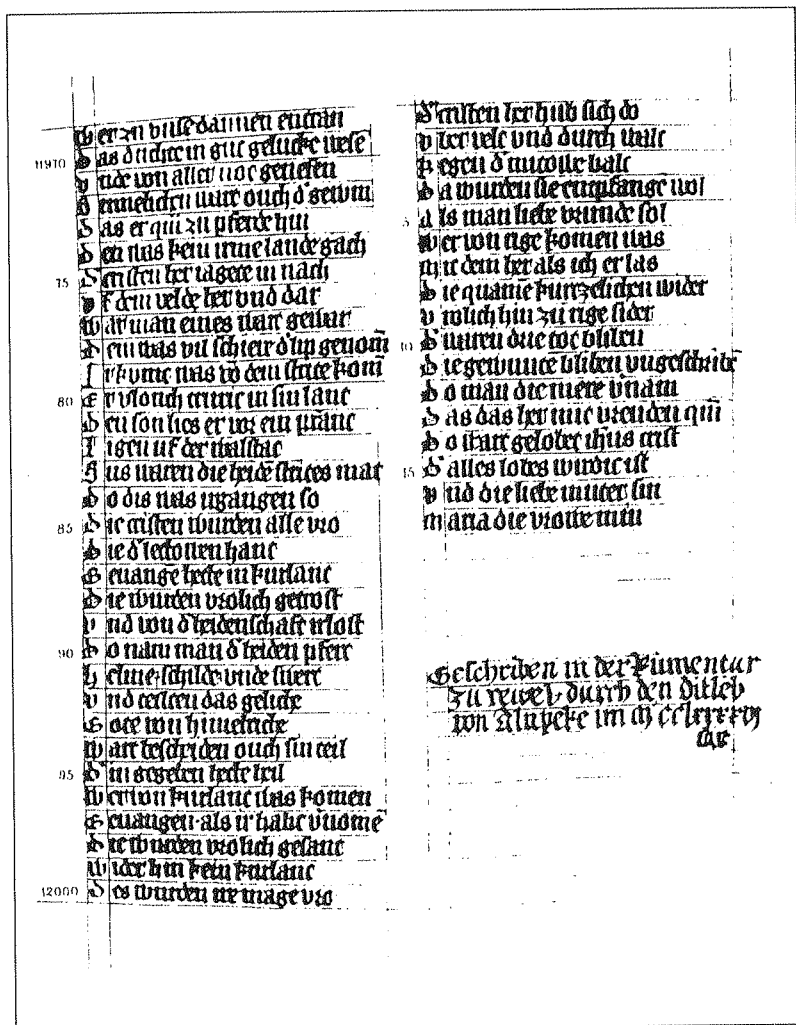 Der zu vlise dannen entran
11970 Das duchte in gut gelucke wese
vnde von aller not genesen
Dennelichen wart ouch d' gewin
Das er quā zu pferde hin
Den was kein irme lande gach
75 D' cristen her iagete in nach
vf dem velde her vnd dar
War man eines wart gewar
Dem was vil schier d' lip genom̄
Ir kunic was vō dem strite kom̄
80 Er vloch einic in sin lanc
Den son lies er vor ein pfanc
Ligen uf der walstat
Sus waren die heidē strites mat
Do dis was irgangen so
85 Die cristen wurden alle vro
Die d' lettowen hant
Geuangē hette in kurlant
Die wurden vrolich getrost
vnd von d' heidenschaft irlost
90 Do nam man d' heiden pfert
Helme schilde vnde swert
vnd teilten das geliche
Gote von himelriche
Wart bescheiden ouch sin teil
95 D' in gegeben hette heil
Wer von kurlant was komen
Geuangen als ir habt v'nomē
Die wurden vrolich gesant
Wider hin kein kurlant
12000 Des wurden ire mage vro
D' cristen her hub sich do
vber velt vnd durch walt
Kegen d' mitowe balt
Da wurden sie empfangē wol
5 Als man liebe vrunde sol
Wer von rige komen was
Mit dem her als ich er las
Die quamē kurzelichen wider
vrolich hin zu rige sider
10 D' waren drie tot bliben
Die gewunte bliben vngeschribē
Do man die mere v'nam
Das das her mit vreuden quā
Do wart gelobet ihūs crist
15 D' alles lobes wirdic ist
vnd die liebe muter sin
Maria die vrowe min
Geschriben in der Kumentur
zu rewel durch den Ditleb
von Alnpeke im m cclxxxxvj
iar